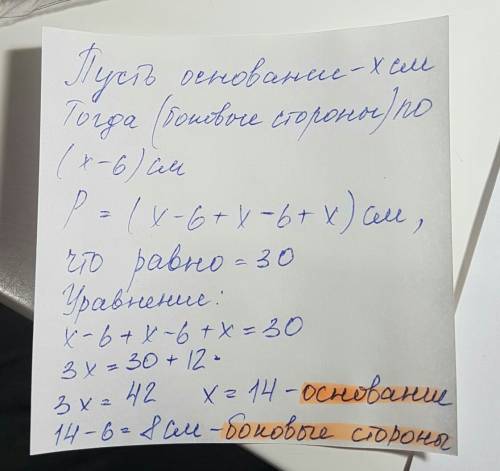 Пусть основание - x см
Тогда (боковые стороны) по
(x-6) см
P = (x-6+x-6+x) см,
что равно = 30
Уравнение:
x-6+x-6+x=30
3x=30+12.
3x=42 x=14-основание
14-6=8см-боковые стороны